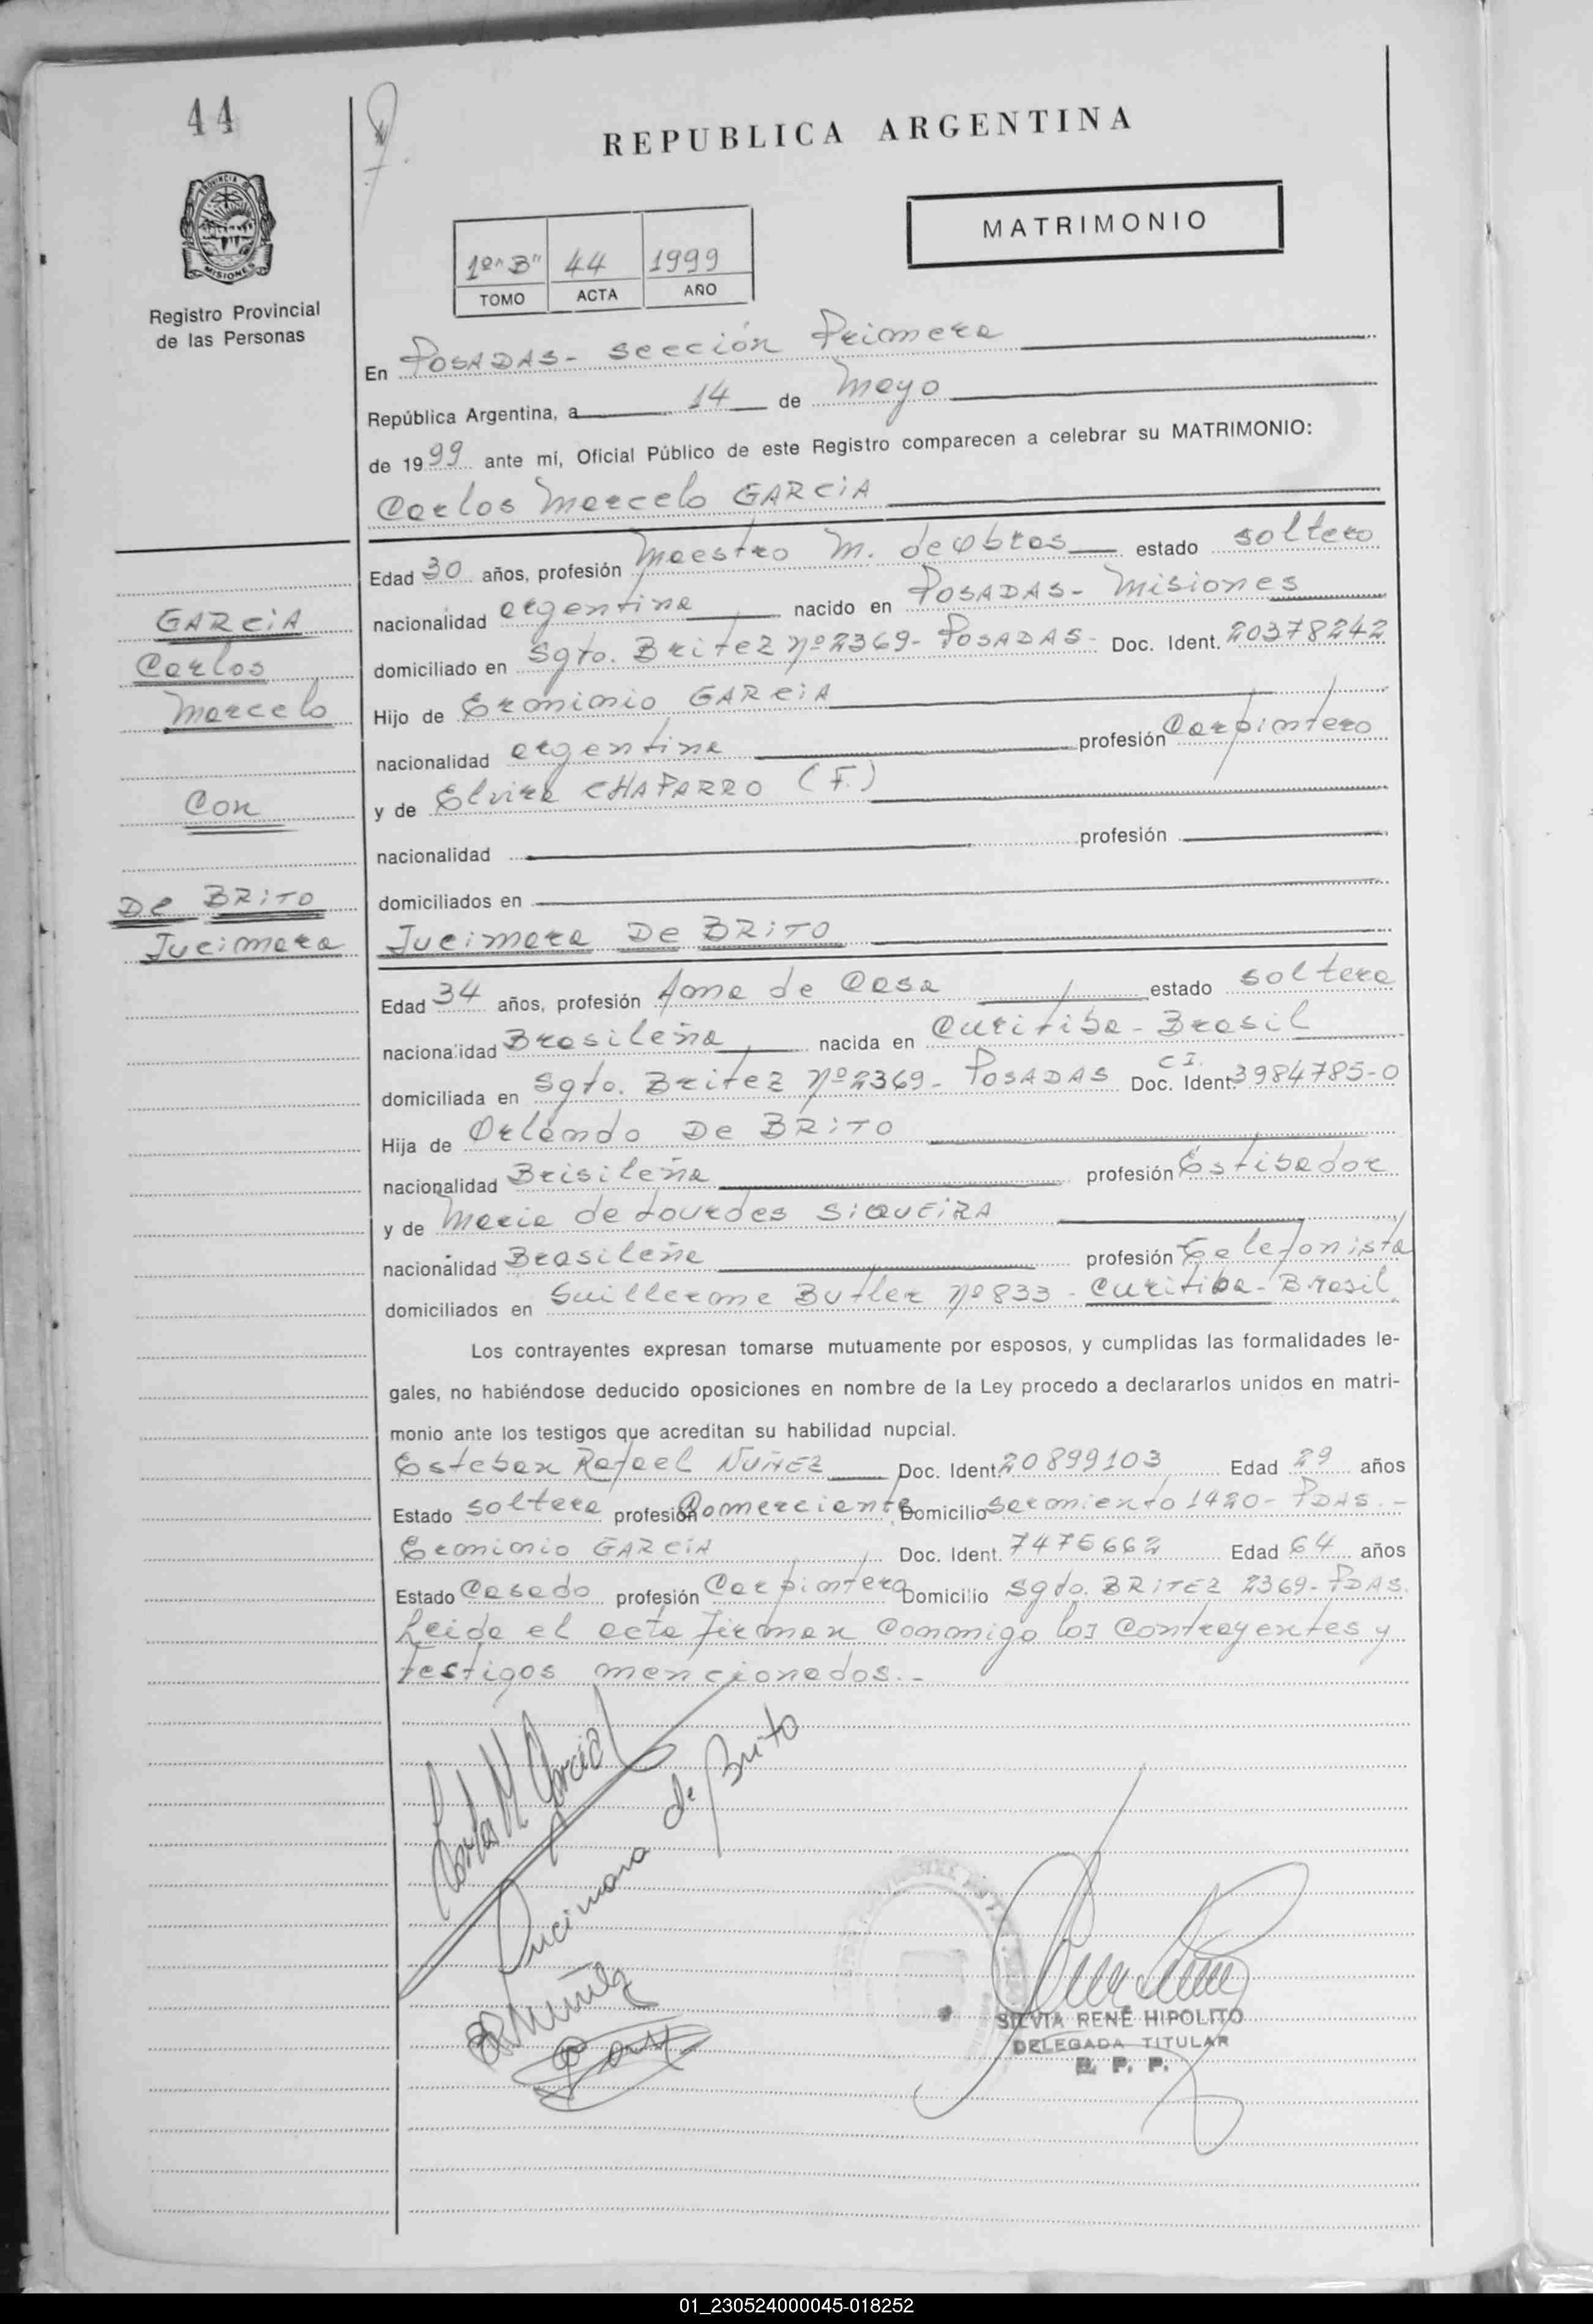 44
REPUBLICA ARGENTINA
PROVINCIA DE
MISIONES
Registro Provincial
de las Personas
MATRIMONIO
1º "B" 44 1999
TOMO ACTA AÑO
En POSADAS- sección Primera
República Argentina, a 14 de Mayo
de 1999 ante mí, Oficial Público de este Registro comparecen a celebrar su MATRIMONIO:
Carlos Marcelo GARCIA
Edad 30 años, profesión Maestro M. de Obras estado soltero
nacionalidad argentina nacido en POSADAS- Misiones
domiciliado en Sgto. Britez nº 2369- POSADAS- Doc. Ident. 20378242
Hijo de Erminio GARCIA
nacionalidad argentina profesión Carpintero
y de Elvira CHAPARRO (F.)
nacionalidad profesión
domiciliados en
GARCIA
Carlos
Marcelo
Con
De BRITO
Jucimara
Jucimara De BRITO
Edad 34 años, profesión Ama de Casa estado soltera
nacionalidad Brasileña nacida en Curitiba- Brasil
domiciliada en Sgto. Britez nº 2369- POSADAS C I. Doc. Ident. 3984785-0
Hija de Orlando De BRITO
nacionalidad Brisileña profesión Estibador
y de Maria de Lourdes SIQUEIRA
nacionalidad Brasileña profesión Telefonista
domiciliados en Guillerme Butler nº 833- Curitiba- Brasil.
Los contrayentes expresan tomarse mutuamente por esposos, y cumplidas las formalidades le-
gales, no habiéndose deducido oposiciones en nombre de la Ley procedo a declararlos unidos en matri-
monio ante los testigos que acreditan su habilidad nupcial.
Esteban Rafael NUÑEZ Doc. Ident. 20899103 Edad 29 años
Estado soltero profesión Comerciante Domicilio Sarmiento 1420- PDAS.-
Erminio GARCIA Doc. Ident. 7475662 Edad 64 años
Estado Casado profesión Carpintero Domicilio Sgto. BRITEZ 2369- PDAS.
Leida el acta firman conmigo los contrayentes y
testigos mencionados.-
Carlos M Garcia
Jucimara de Brito
SILVIA RENÉ HIPOLITO
DELEGADA TITULAR
R. P. P.
01_230524000045-018252